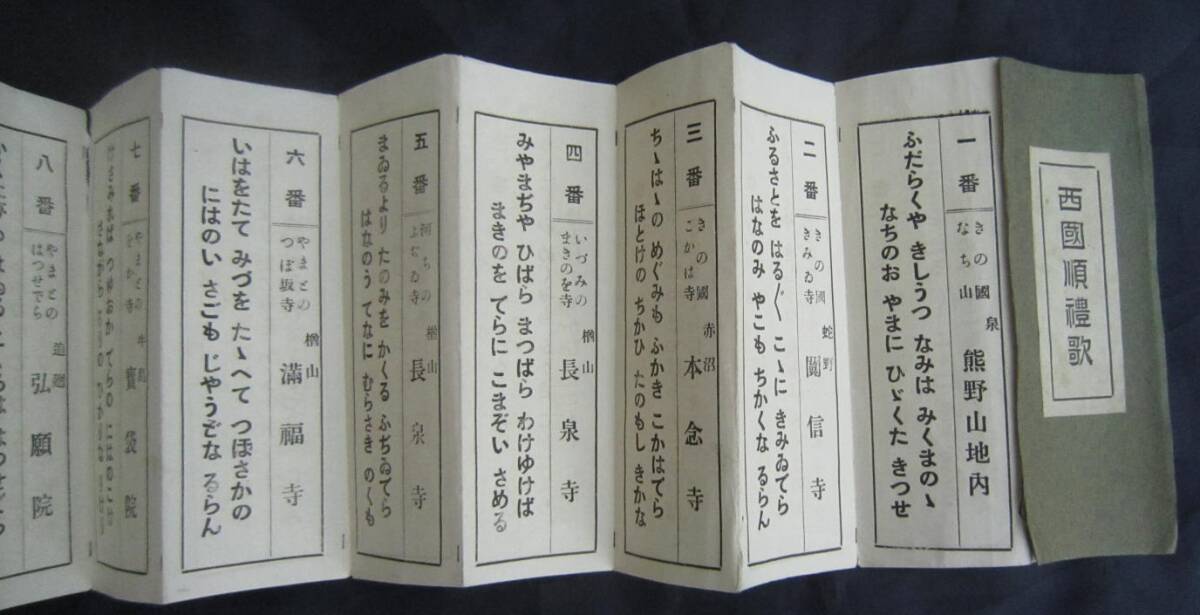 西國順禮歌
一番
きの國 泉
なち山
熊野山地内
ふだらくや きしうつ なみは みくまのゝ
なちのお やまに ひゞくた きつせ
二番
きの國 蛇野
きみゐ寺
圓信寺
ふるさとを はる〴〵 こゝに きみゐてら
はなのみ やこも ちかくな るらん
三番
きの國 赤沼
こかは寺
本念寺
ちゝはゝの めぐみも ふかき こかはてら
ほとけの ちかひ たのもし きかな
四番
いづみの 楢山
まきのを寺
長泉寺
みやまぢや ひばら まつばら わけゆけば
まきのを てらに こまぞい さめる
五番
河ちの 楢山
ふぢゐ寺
長泉寺
まゐるより たのみを かくる ふぢゐてら
はなのう てなに むらさき のくも
六番
やまとの 楢山
つぼ坂寺
滿福寺
いはをたて みづを たゝへて つぼさかの
にはのい さごも じやうどな るらん
七番
やまとの
をか寺
寳袋院
けさみれば つゆ おか てらの にはのこけ
八番
やまとの
はつせでら
弘願院